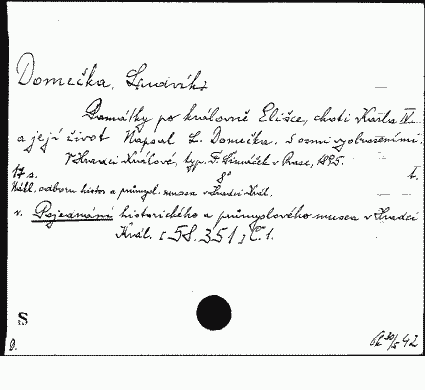 Domečka, Ludvík:
Památky po královně Elišce, choti Karla IV.
a její život Napsal L. Domečka. S osmi vyobrazeními.
V Hradci Králové, typ. F. v Praze, 1895.
17 s. 8° t.
Nákl. odboru histor. a průmysl. musea v Hradci Král.
v. Pojednání historického a průmyslového musea v Hradci
Král. [58.351] Č. 1.
S
D. 30/5 42